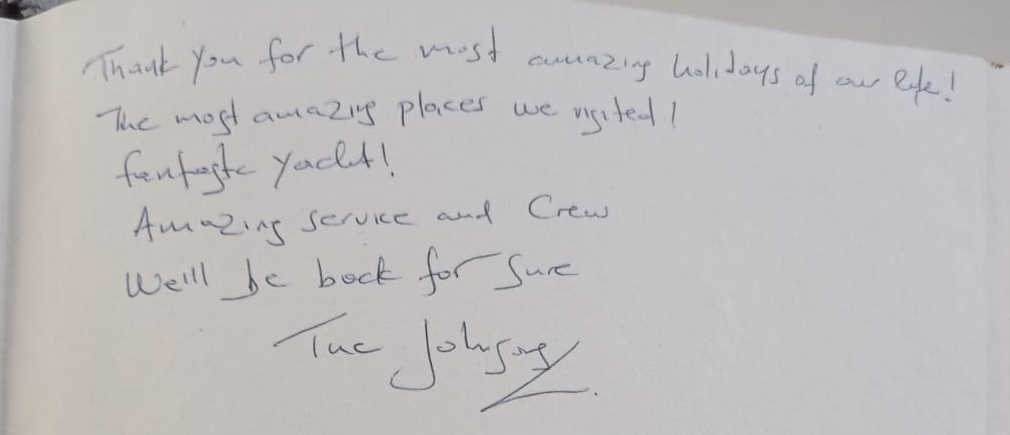 Thank you for the most amazing holidays of our life!
The most amazing places we visited!
fantastc yacht!
Amazing service and Crew
We'll be back for sure
The Johnsons